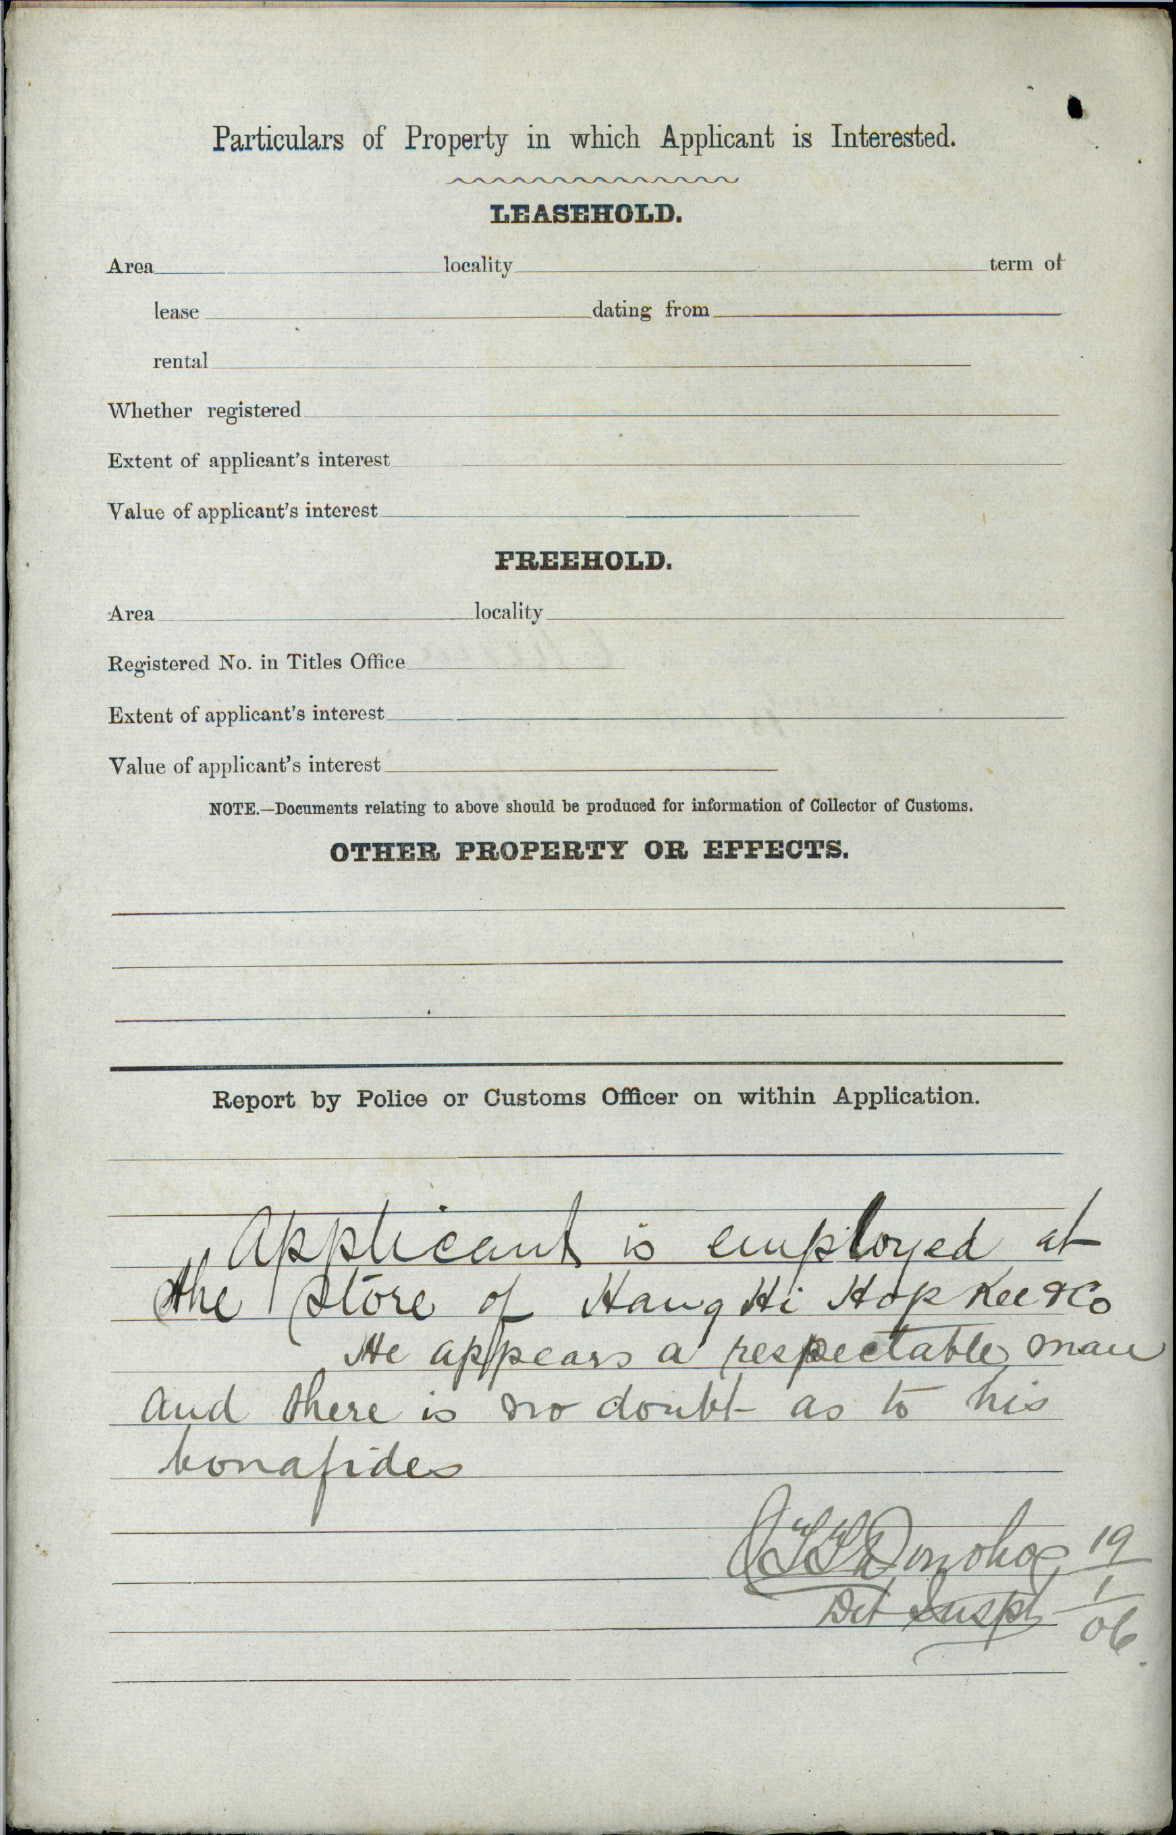 Particulars of Property in which Applicant is Interested.
LEASEHOLD.
Area locality term of
lease dating from
rental
Whether registered
Extent of applicant's interest
Value of applicant's interest
FREEHOLD.
Area locality
Registered No. in Titles Office
Extent of applicant's interest
Value of applicant's interest
NOTE.—Documents relating to above should be produced for information of Collector of Customs.
OTHER PROPERTY OR EFFECTS.
Report by Police or Customs Officer on within Application.
Applicant is employed at
the store of Hang Hi Hop Kee & Co
He appears a respectable man
and there is no doubt as to his
bonafides
Donohoe 19
Det Inspr 1
06.